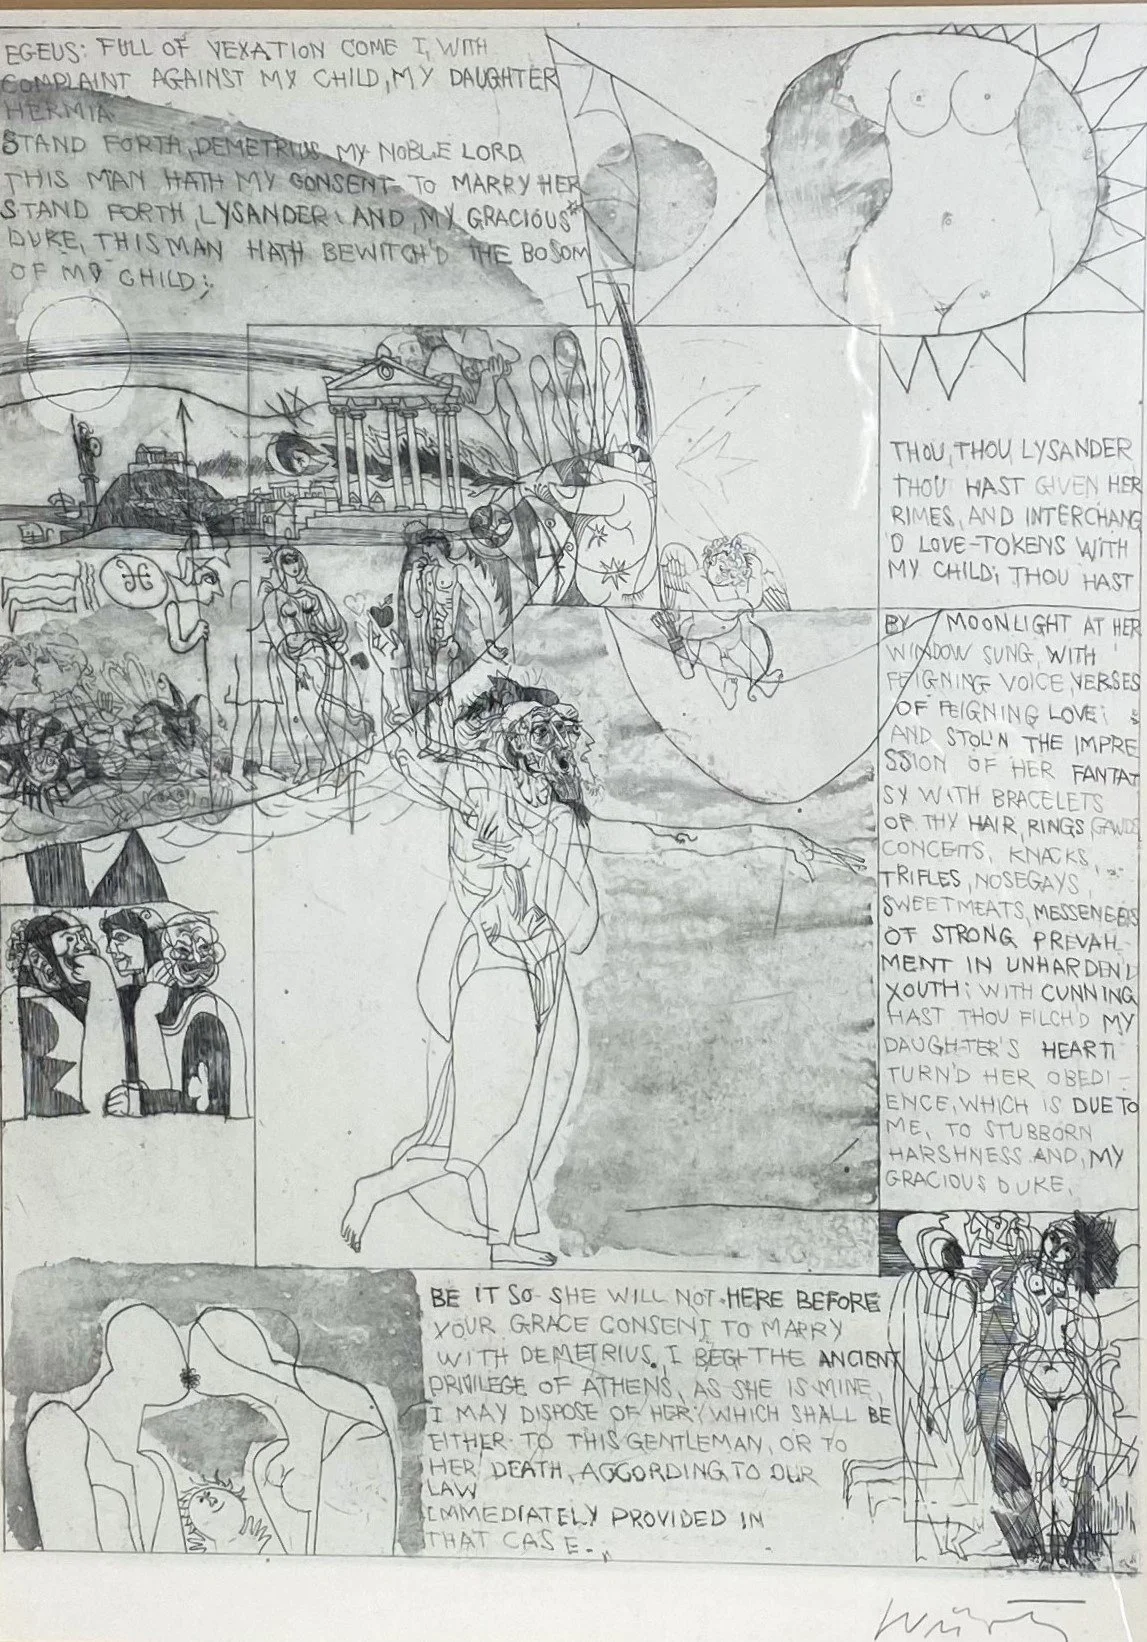 EGEUS: FULL OF VEXATION COME I, WITH
COMPLAINT AGAINST MY CHILD, MY DAUGHTER
HERMIA.
STAND FORTH, DEMETRIUS. MY NOBLE LORD
THIS MAN HATH MY CONSENT TO MARRY HER
STAND FORTH, LYSANDER: AND, MY GRACIOUS
DUKE, THIS MAN HATH BEWITCH'D THE BOSOM
OF MY CHILD;
THOU, THOU, LYSANDER
THOU HAST GIVEN HER
RIMES, AND INTERCHANG
'D LOVE-TOKENS WITH
MY CHILD; THOU HAST
BY MOONLIGHT AT HER
WINDOW SUNG, WITH
FEIGNING VOICE, VERSES
OF FEIGNING LOVE;
AND STOL'N THE IMPRE
SSION OF HER FANTAT
SY WITH BRACELETS
OF THY HAIR, RINGS, GAWDS
CONCEITS, KNACKS,
TRIFLES, NOSEGAYS,
SWEETMEATS, MESSENGERS
OF STRONG PREVAIL-
MENT IN UNHARDEN'D
YOUTH; WITH CUNNING
HAST THOU FILCH'D MY
DAUGHTER'S HEART;
TURN'D HER OBEDI-
ENCE, WHICH IS DUE TO
ME, TO STUBBORN
HARSHNESS. AND, MY
GRACIOUS DUKE,
BE IT SO SHE WILL NOT HERE BEFORE
YOUR GRACE CONSENT TO MARRY
WITH DEMETRIUS, I BEG THE ANCIENT
PRIVILEGE OF ATHENS, AS SHE IS MINE,
I MAY DISPOSE OF HER; WHICH SHALL BE
EITHER TO THIS GENTLEMAN, OR TO
HER DEATH, ACCORDING TO OUR
LAW
IMMEDIATELY PROVIDED IN
THAT CASE.